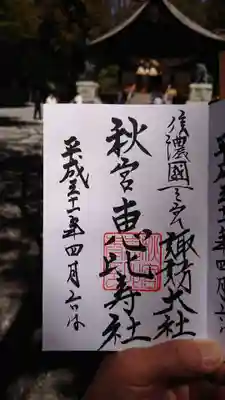 信濃國一之宮
諏訪大社
秋宮恵比寿社
平成三十一年四月六日
平成
年四月